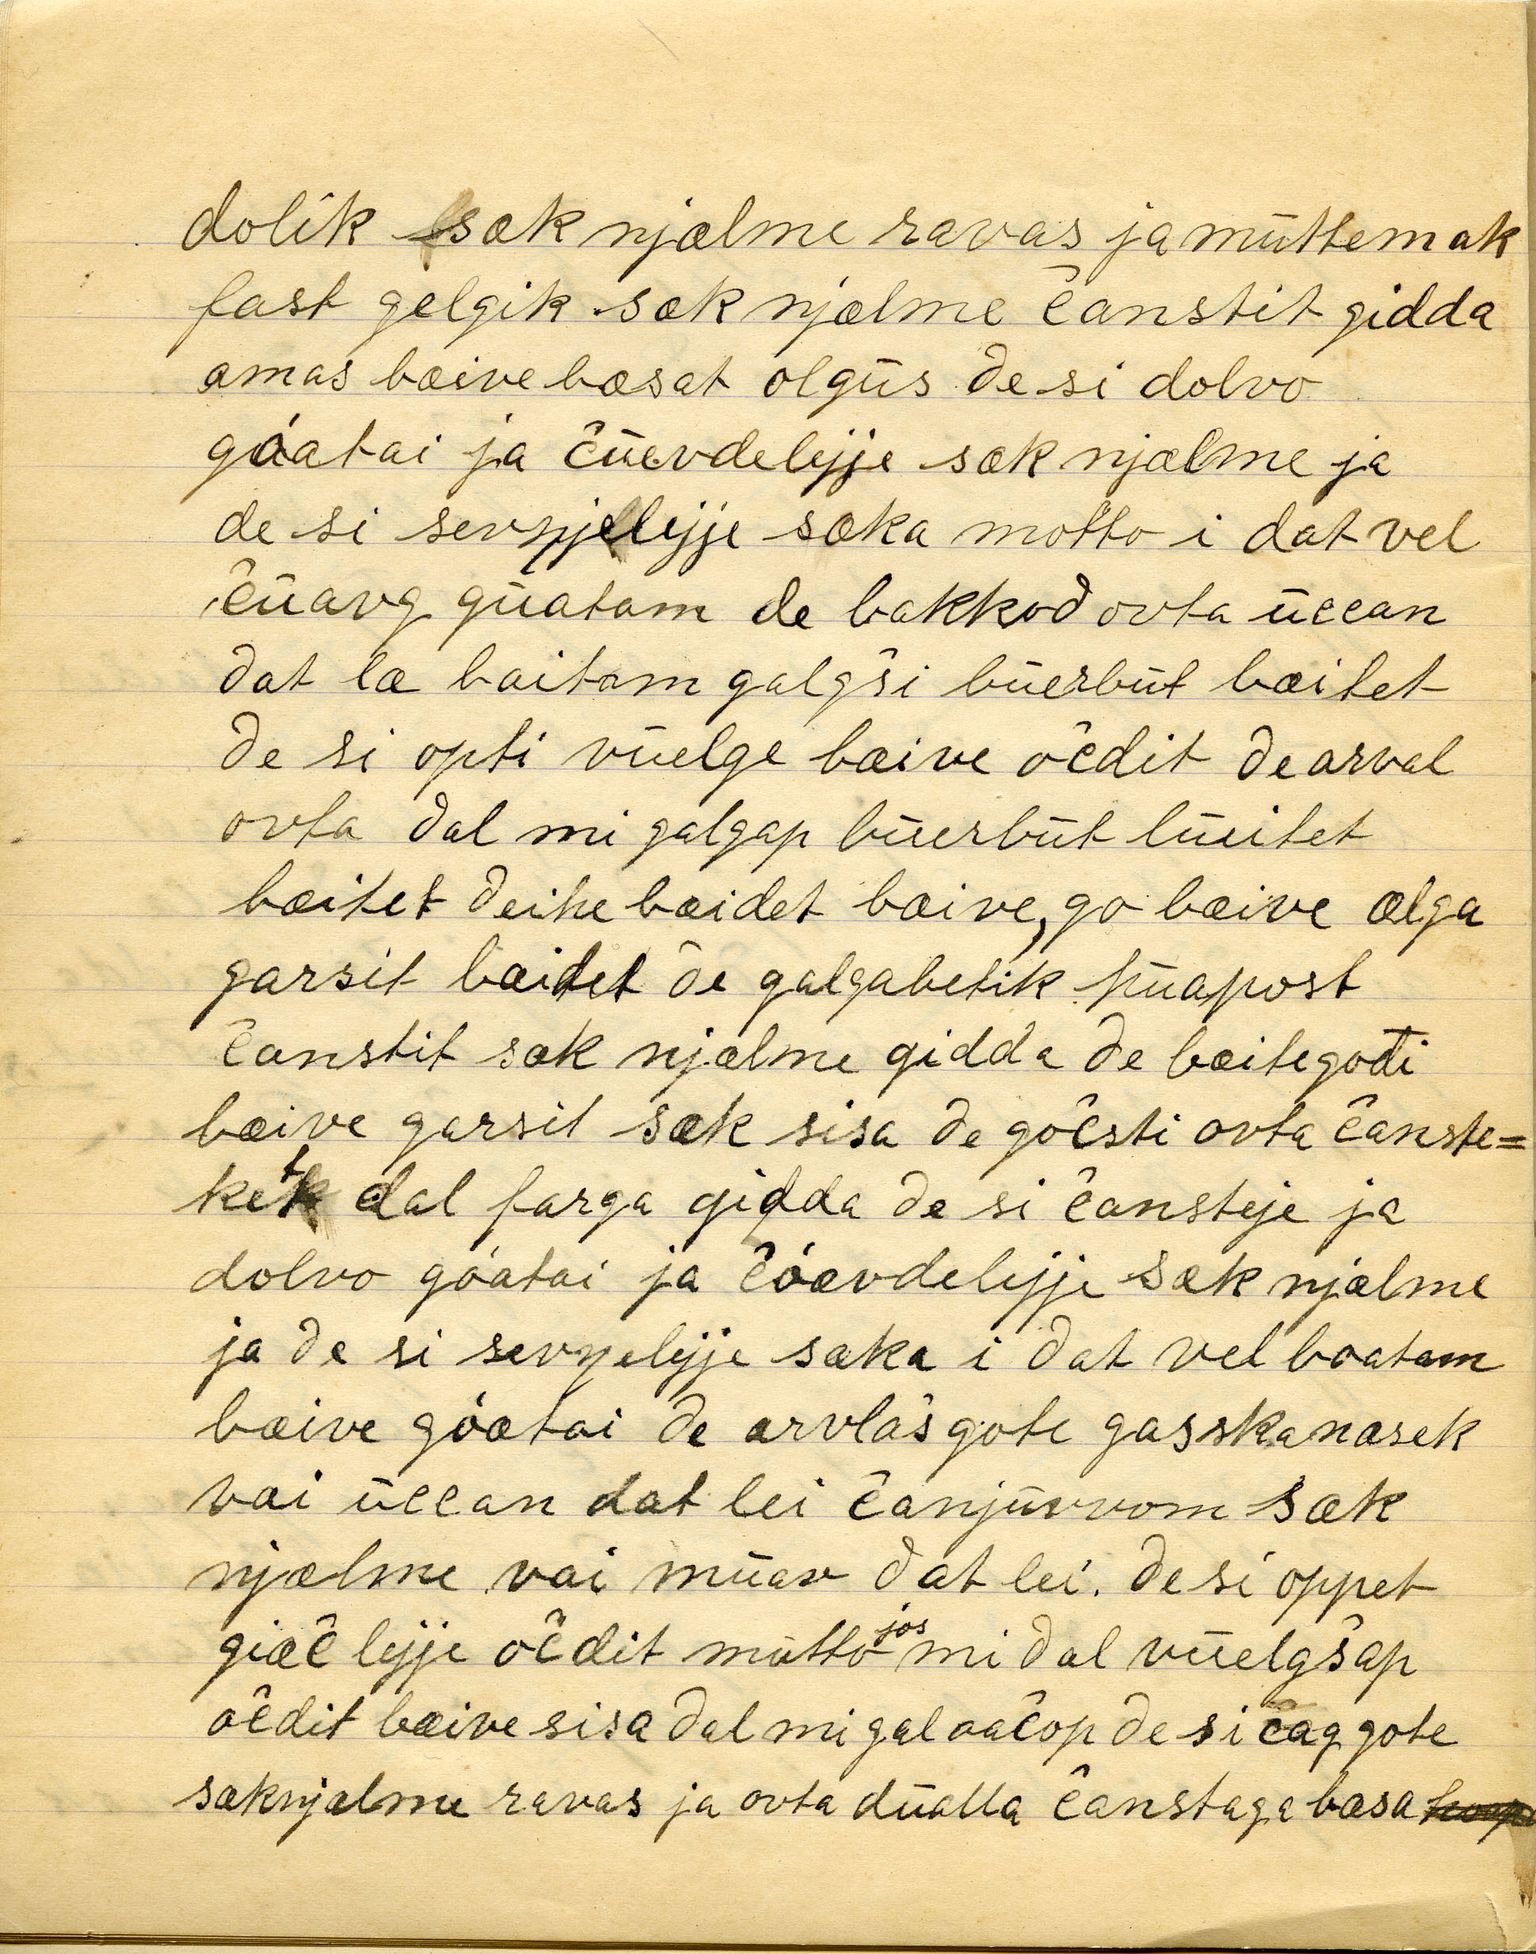 dolik sæknjælme ravas ja müttemak
fast gelgik sæknjælme ĉanstit gidda
amas bæive bæsat olgüs de si dolvo
góatai ja ĉüevdelejje sæk njælme ja
de si sevnjelejje sæka motto i dat vel
ĉüavg güatam de bakkod ovta üccan
dat læ baitam galgŝi büerbüt bæitet
de si opti vüelge bæive oĉdit de arval
ovta dal mi galgap büerbüt lüeitet
bæitet deike bæidet bæive, go bæive ælga
garsit bæidet de galgabetik hüapost
ĉanstit sæk njælme gidda de bæitegođi
bæive garsit sæk sisa de goĉsti ovta ĉanste=
ketk dal farga gidda de si ĉansteje ja
dolvo góatai ja ĉóævdelejje sæk njælme
ja de si sevnelejje sæka i dat vel boatam
bæive góætai de arvlaŝgote gasskanæsek
vai üccan dat lei ĉanjüvvom sæk
njælme vai müav dat lei. de si oppet
giæĉlejje oĉdit mütto jos mi dal vüelgŝap
oĉdit bæive sisa dal mi gal oaĉop de si ĉaggote
sæknjælme ravas ja ovta düalla ĉanstaga bæsa